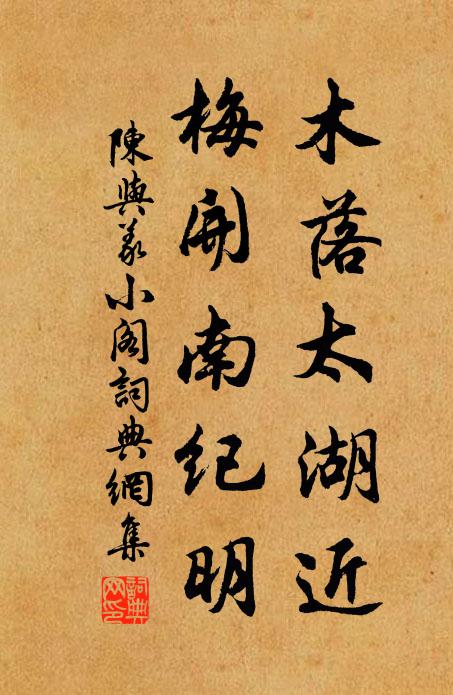 木落太湖近
梅開南紀明
陳與義小閣詞典網集
詞典網印